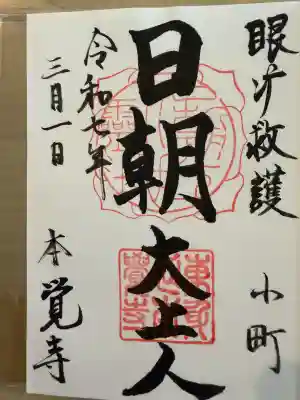 眼疾救護
小町
日朝大上人
令和七年
三月一日
本覚寺